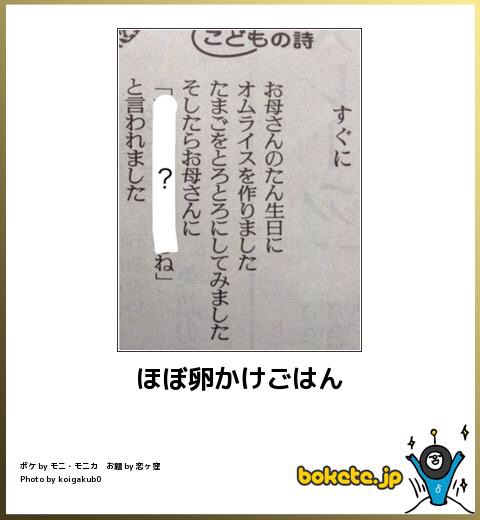 こどもの詩
すぐに
お母さんのたん生日に
オムライスを作りました
たまごをとろとろにしてみました
そしたらお母さんに
「　？　ね」
と言われました
ほぼ卵かけごはん
ボケ by モニ・モニカ　お題 by 恋ヶ窪
Photo by koigakub0
bokete.jp